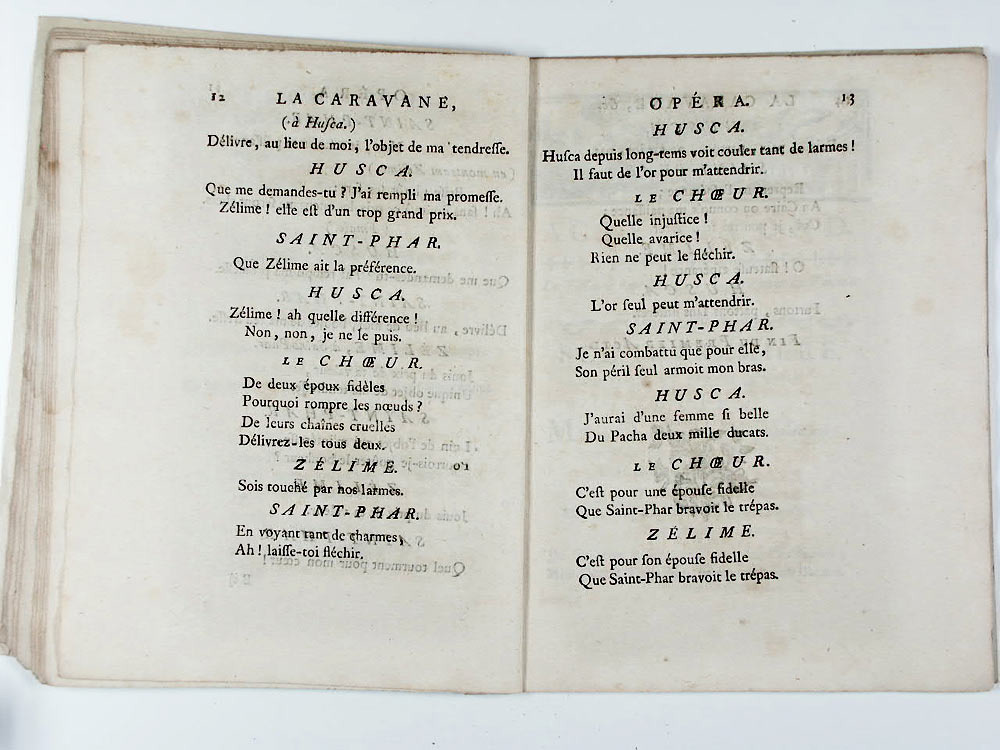 12 LA CARAVANE,
(à Husca.)
Délivre, au lieu de moi, l'objet de ma tendresse.
HUSCA.
Que me demandes-tu ? J'ai rempli ma promesse.
Zélime ! elle est d'un trop grand prix.
SAINT-PHAR.
Que Zélime ait la préférence.
HUSCA.
Zélime ! ah quelle différence !
Non, non, je ne le puis.
LE CHŒUR.
De deux époux fidèles
Pourquoi rompre les nœuds ?
De leurs chaînes cruelles
Délivrez-les tous deux.
ZÉLIME.
Sois touché par nos larmes.
SAINT-PHAR.
En voyant tant de charmes,
Ah ! laisse-toi fléchir.
OPÉRA. 13
HUSCA.
Husca depuis long-tems voit couler tant de larmes !
Il faut de l'or pour m'attendrir.
LE CHŒUR.
Quelle injustice !
Quelle avarice !
Rien ne peut le fléchir.
HUSCA.
L'or seul peut m'attendrir.
SAINT-PHAR.
Je n'ai combattu que pour elle,
Son péril seul armoit mon bras.
HUSCA.
J'aurai d'une femme si belle
Du Pacha deux mille ducats.
LE CHŒUR.
C'est pour une épouse fidelle
Que Saint-Phar bravoit le trépas.
ZÉLIME.
C'est pour son épouse fidelle
Que Saint-Phar bravoit le trépas.